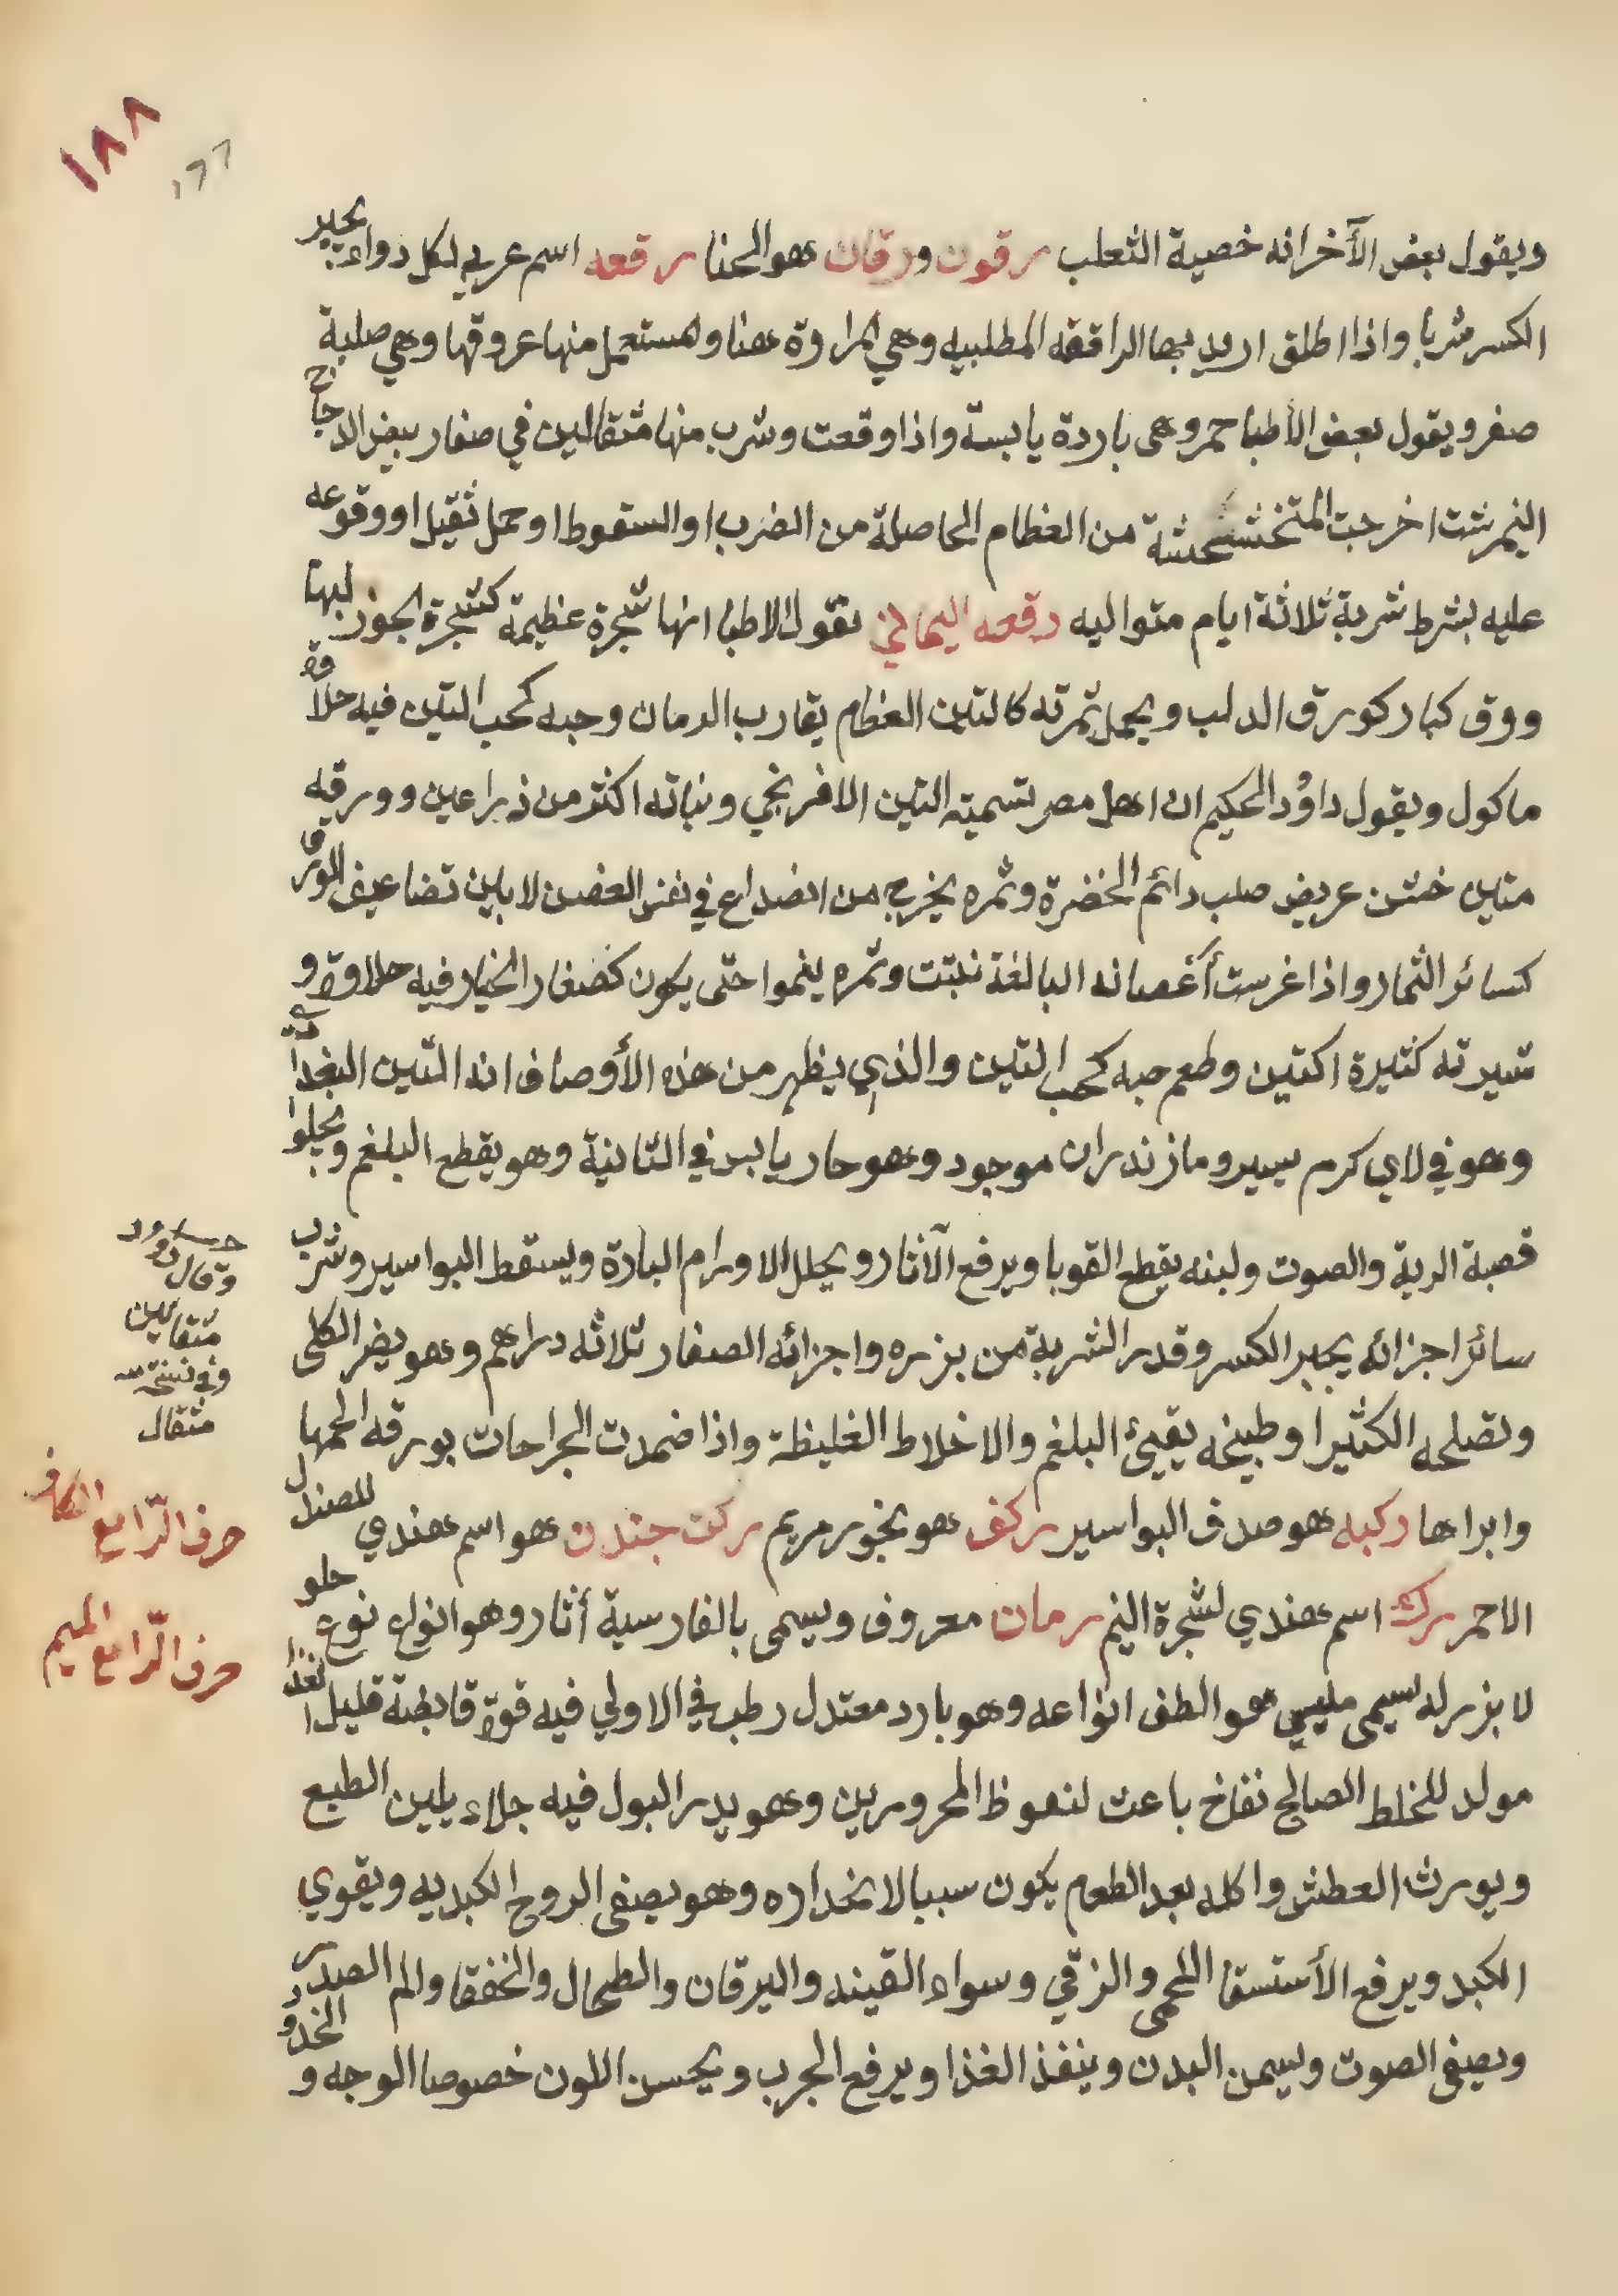 ١٨٨
١٦٦
ويقول بعض الآخر انه خصية الثعلب رقون ورقان هو الحنا رقعه اسم عربي لكل دواء يجبر
الكسر شربا واذا اطلق اريد بها الراقعه المطلبيه وهي المرادة هنا والمستعمل منها عروقها وهي صلبة
صفر ويقول بعض الأطبا حمر وهى باردة يابسة واذا وقعت وشرب منها مثقالين في صفار بيض الدجاج
النيمرشت اخرجت المتخشخشة من العظام الحاصلة من الضرب او السقوط او حمل ثقيل او وقوعه
عليه بشرط شربة ثلاثة ايام متواليه رقعه اليماني تقول الاطبا انها شجرة عظيمة كشجرة الجوز لبها
وورق كبار كورق الدلب ويحمل ثمرته كالتين العظام يقارب الرمان وحبه كحب التين فيه حلاوة
ماكول ويقول داؤد الحكيم ان اهل مصر تسميته التين الافرنجي ونباته اكثر من ذراعين وورقه
متين خشن عريض صلب دائم الخضرة وثمره يخرج من اضداع في نفس الغصن لا بين تضاعيف الورق
كسائر الثمار واذا غرست أغصانه البالغة نبتت وثمره ينموا حتى يكون كصغار الخيار فيه حلاوة و
شيرته كثيرة اكتين وطعم حبه كحب التين والذي يظهر من هذه الأوصاف انه التين البغدا
وهو في لاي كرم سير ومازندران موجود وهو حار يابس في الثانية وهو يقطع البلغم ويجلوا
قصبة الرية والصوت ولبنه يقطع القوبا ويرفع الآثار ويحلل الاورام الباردة ويسقط البواسير وشرب
سائر اجزائه يجبر الكسر وقدر الشربة من بزره واجزائه الصغار ثلاثه دراهم وهو يضر الكلى
وتصلحه الكثيرا وطبيخه يقيئ البلغم والاخلاط الغليظة واذا ضمدت الجراحات بورقه الحمها
وابراها ركبه هو صدف البواسير ركف هو بخور مريم ركت جندن هو اسم هندي للصندل
الاحمر رك اسم هندي لشجرة النيم رمان معروف ويسمى بالفارسية أنار وهو انواع نوع حلو
لا بزر له يسمى مليسي هو الطف انواعه وهو بارد معتدل رطب في الاولي فيه قوة قابضة قليل الغذا
مولد للخلط الصالح نفاخ باعث لنعوظ المحرورين وهو يدر البول فيه جلاء يلين الطبع
ويورث العطش واكله بعد الطعام يكون سببا لانحداره وهو يصفى الروح الكبديه ويقوي
الكبد ويرفع الأستسقا اللحمى والزقي وسواء القينه واليرقان والطحال والخفقا والم الصدر
ويصفى الصوت ويسمن البدن وينفذ الغذا ويرفع الجرب ويحسن اللون خصوصا الوجه و الخدود
وقال داود
مثقالين
وفي نسخة
مثقال
حرف الرّا مع الكاف
حرف الرّا مع الميم